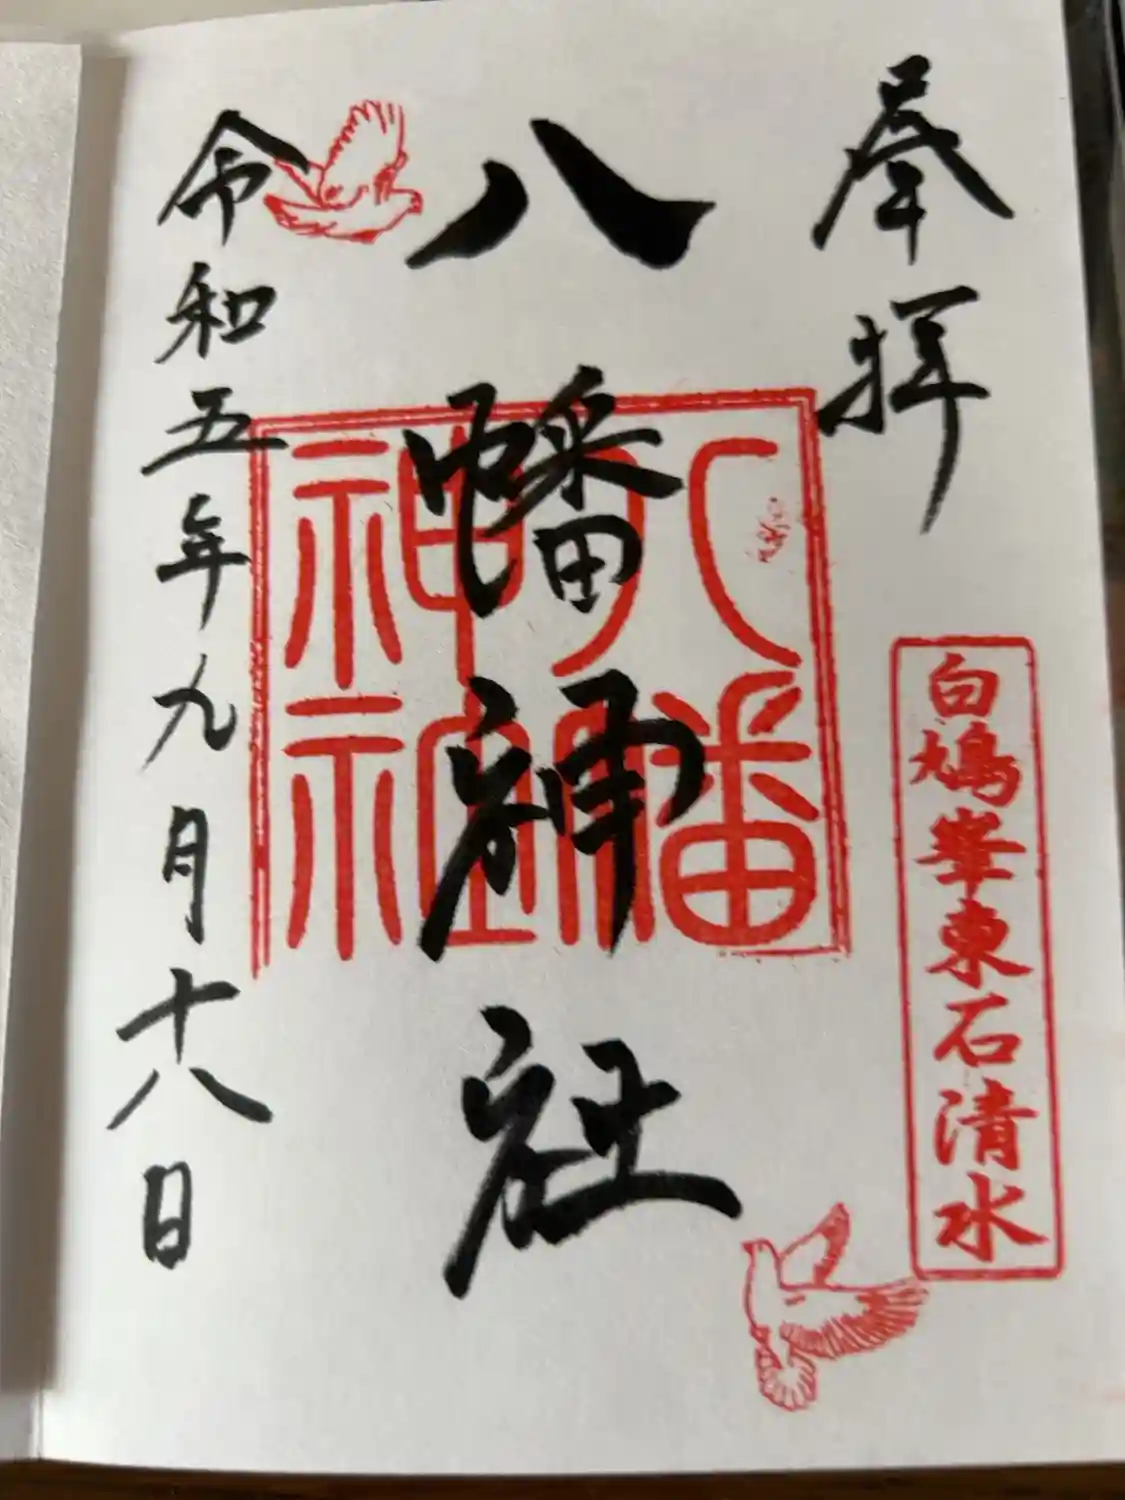 奉拝
白鳩峯東石清水
八幡神社
八幡神社
令和五年九月十八日